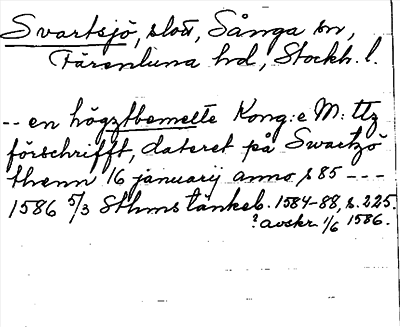 Svartsjö, slott, Sånga sn,
Färentuna hd, Stockh. l.
-- en högztbemelte Kong:e M: ttz
förschrifft, dateret på Swartzö
thenn 16 januarij anno /85 ---
1586 5/3 Sthms tänkeb. 1584-88, s. 225.
? avskr. 1/6 1586.